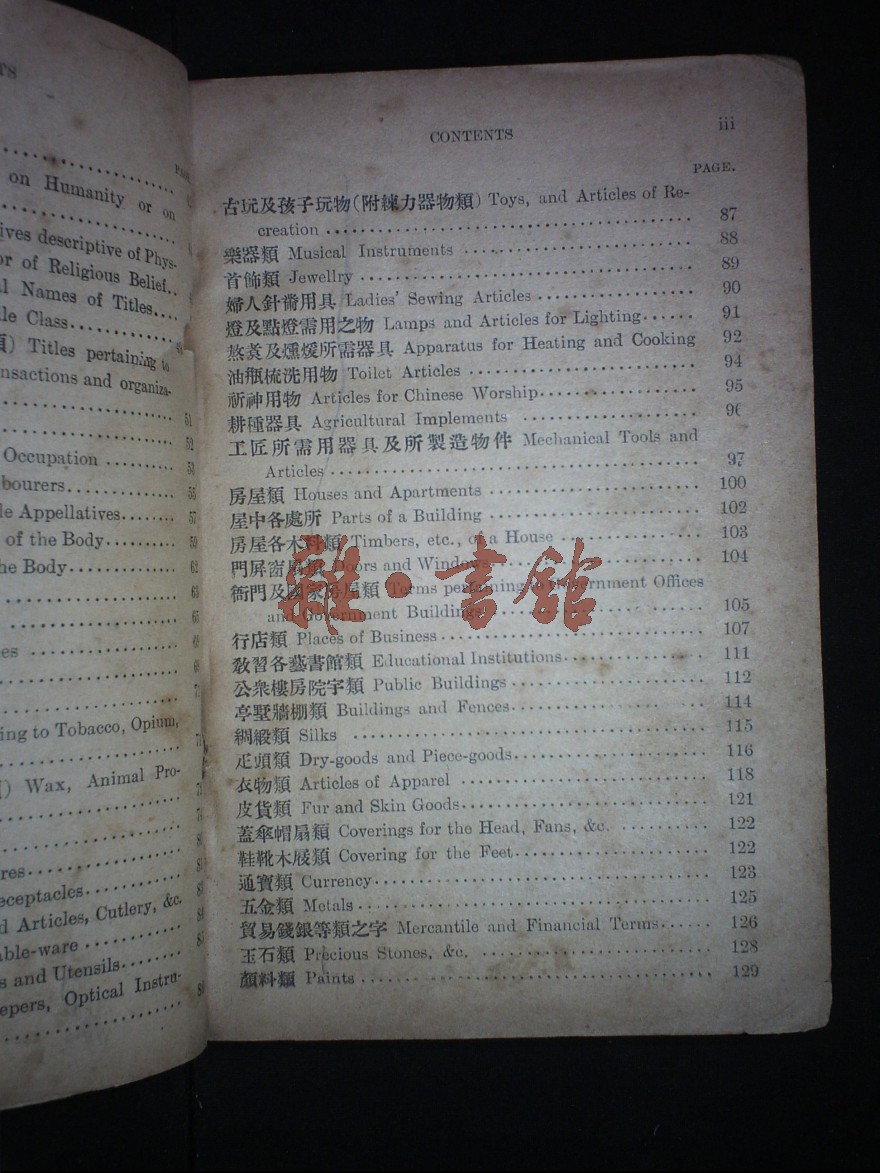 TS
on Humanity or on
ives descriptive of Phys-
or of Religious Belief..
l Names of Titles....
le Class
) Titles pertaining to
nsactions and organiza-
51
52
Occupation
53
bourers
le Appellatives
57
of the Body
59
he Body
62
63
65
es
ing to Tobacco, Opium,
) Wax, Animal Pro-
res
eceptacles
d Articles, Cutlery, &c.
able-ware
s and Utensils
epers, Optical Instru-
CONTENTS
iii
PAGE.
古玩及孩子玩物(附練力器物類) Toys, and Articles of Re-
creation 87
樂器類 Musical Instruments 88
首飾類 Jewellry 89
婦人針黹用具 Ladies' Sewing Articles 90
燈及點燈需用之物 Lamps and Articles for Lighting 91
熬煑及燻煖所需器具 Apparatus for Heating and Cooking 92
油瓶梳洗用物 Toilet Articles 94
祈神用物 Articles for Chinese Worship 95
耕種器具 Agricultural Implements 96
工匠所需用器具及所製造物件 Mechanical Tools and
Articles 97
房屋類 Houses and Apartments 100
屋中各處所 Parts of a Building 102
房屋各木料類 Timbers, etc., of a House 103
門屏窗扇類 Doors and Windows 104
衙門及國家房屋類 Terms pertaining to Government Offices
and Government Buildings 105
行店類 Places of Business 107
敎習各藝書館類 Educational Institutions 111
公衆樓房院宇類 Public Buildings 112
亭墅牆棚類 Buildings and Fences 114
綢緞類 Silks 115
疋頭類 Dry-goods and Piece-goods 116
衣物類 Articles of Apparel 118
皮貨類 Fur and Skin Goods 121
蓋傘帽扇類 Coverings for the Head, Fans, &c. 122
鞋靴木屐類 Covering for the Feet 122
通寶類 Currency 123
五金類 Metals 125
貿易錢銀等類之字 Mercantile and Financial Terms 126
玉石類 Precious Stones, &c. 128
顏料類 Paints 129
雜·書館